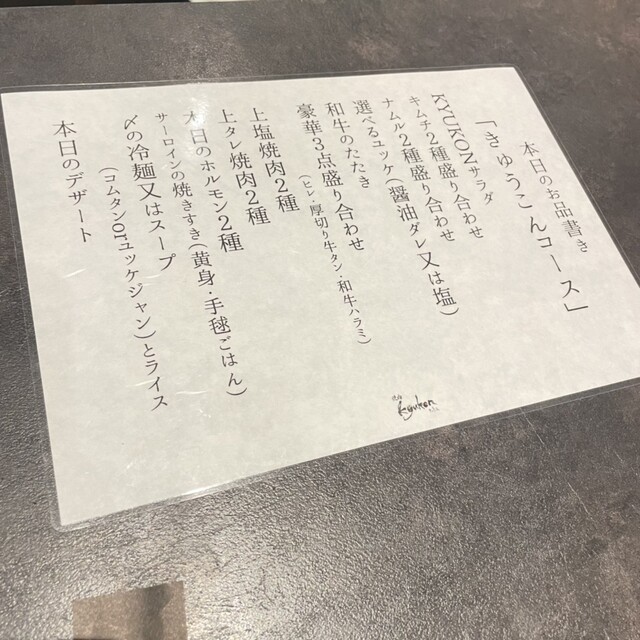 本日のお品書き
「きゅうこんコース」
KYUKONサラダ
キムチ2種盛り合わせ
ナムル2種盛り合わせ
選べるユッケ(醤油ダレ又は塩)
和牛のたたき
豪華3点盛り合わせ
(ヒレ・厚切り牛タン・和牛ハラミ)
上塩焼肉2種
上タレ焼肉2種
本日のホルモン2種
サーロインの焼きすき(黄身・手毬ごはん)
〆の冷麺又はスープ
(コムタンorユッケジャン)とライス
本日のデザート
kyukon